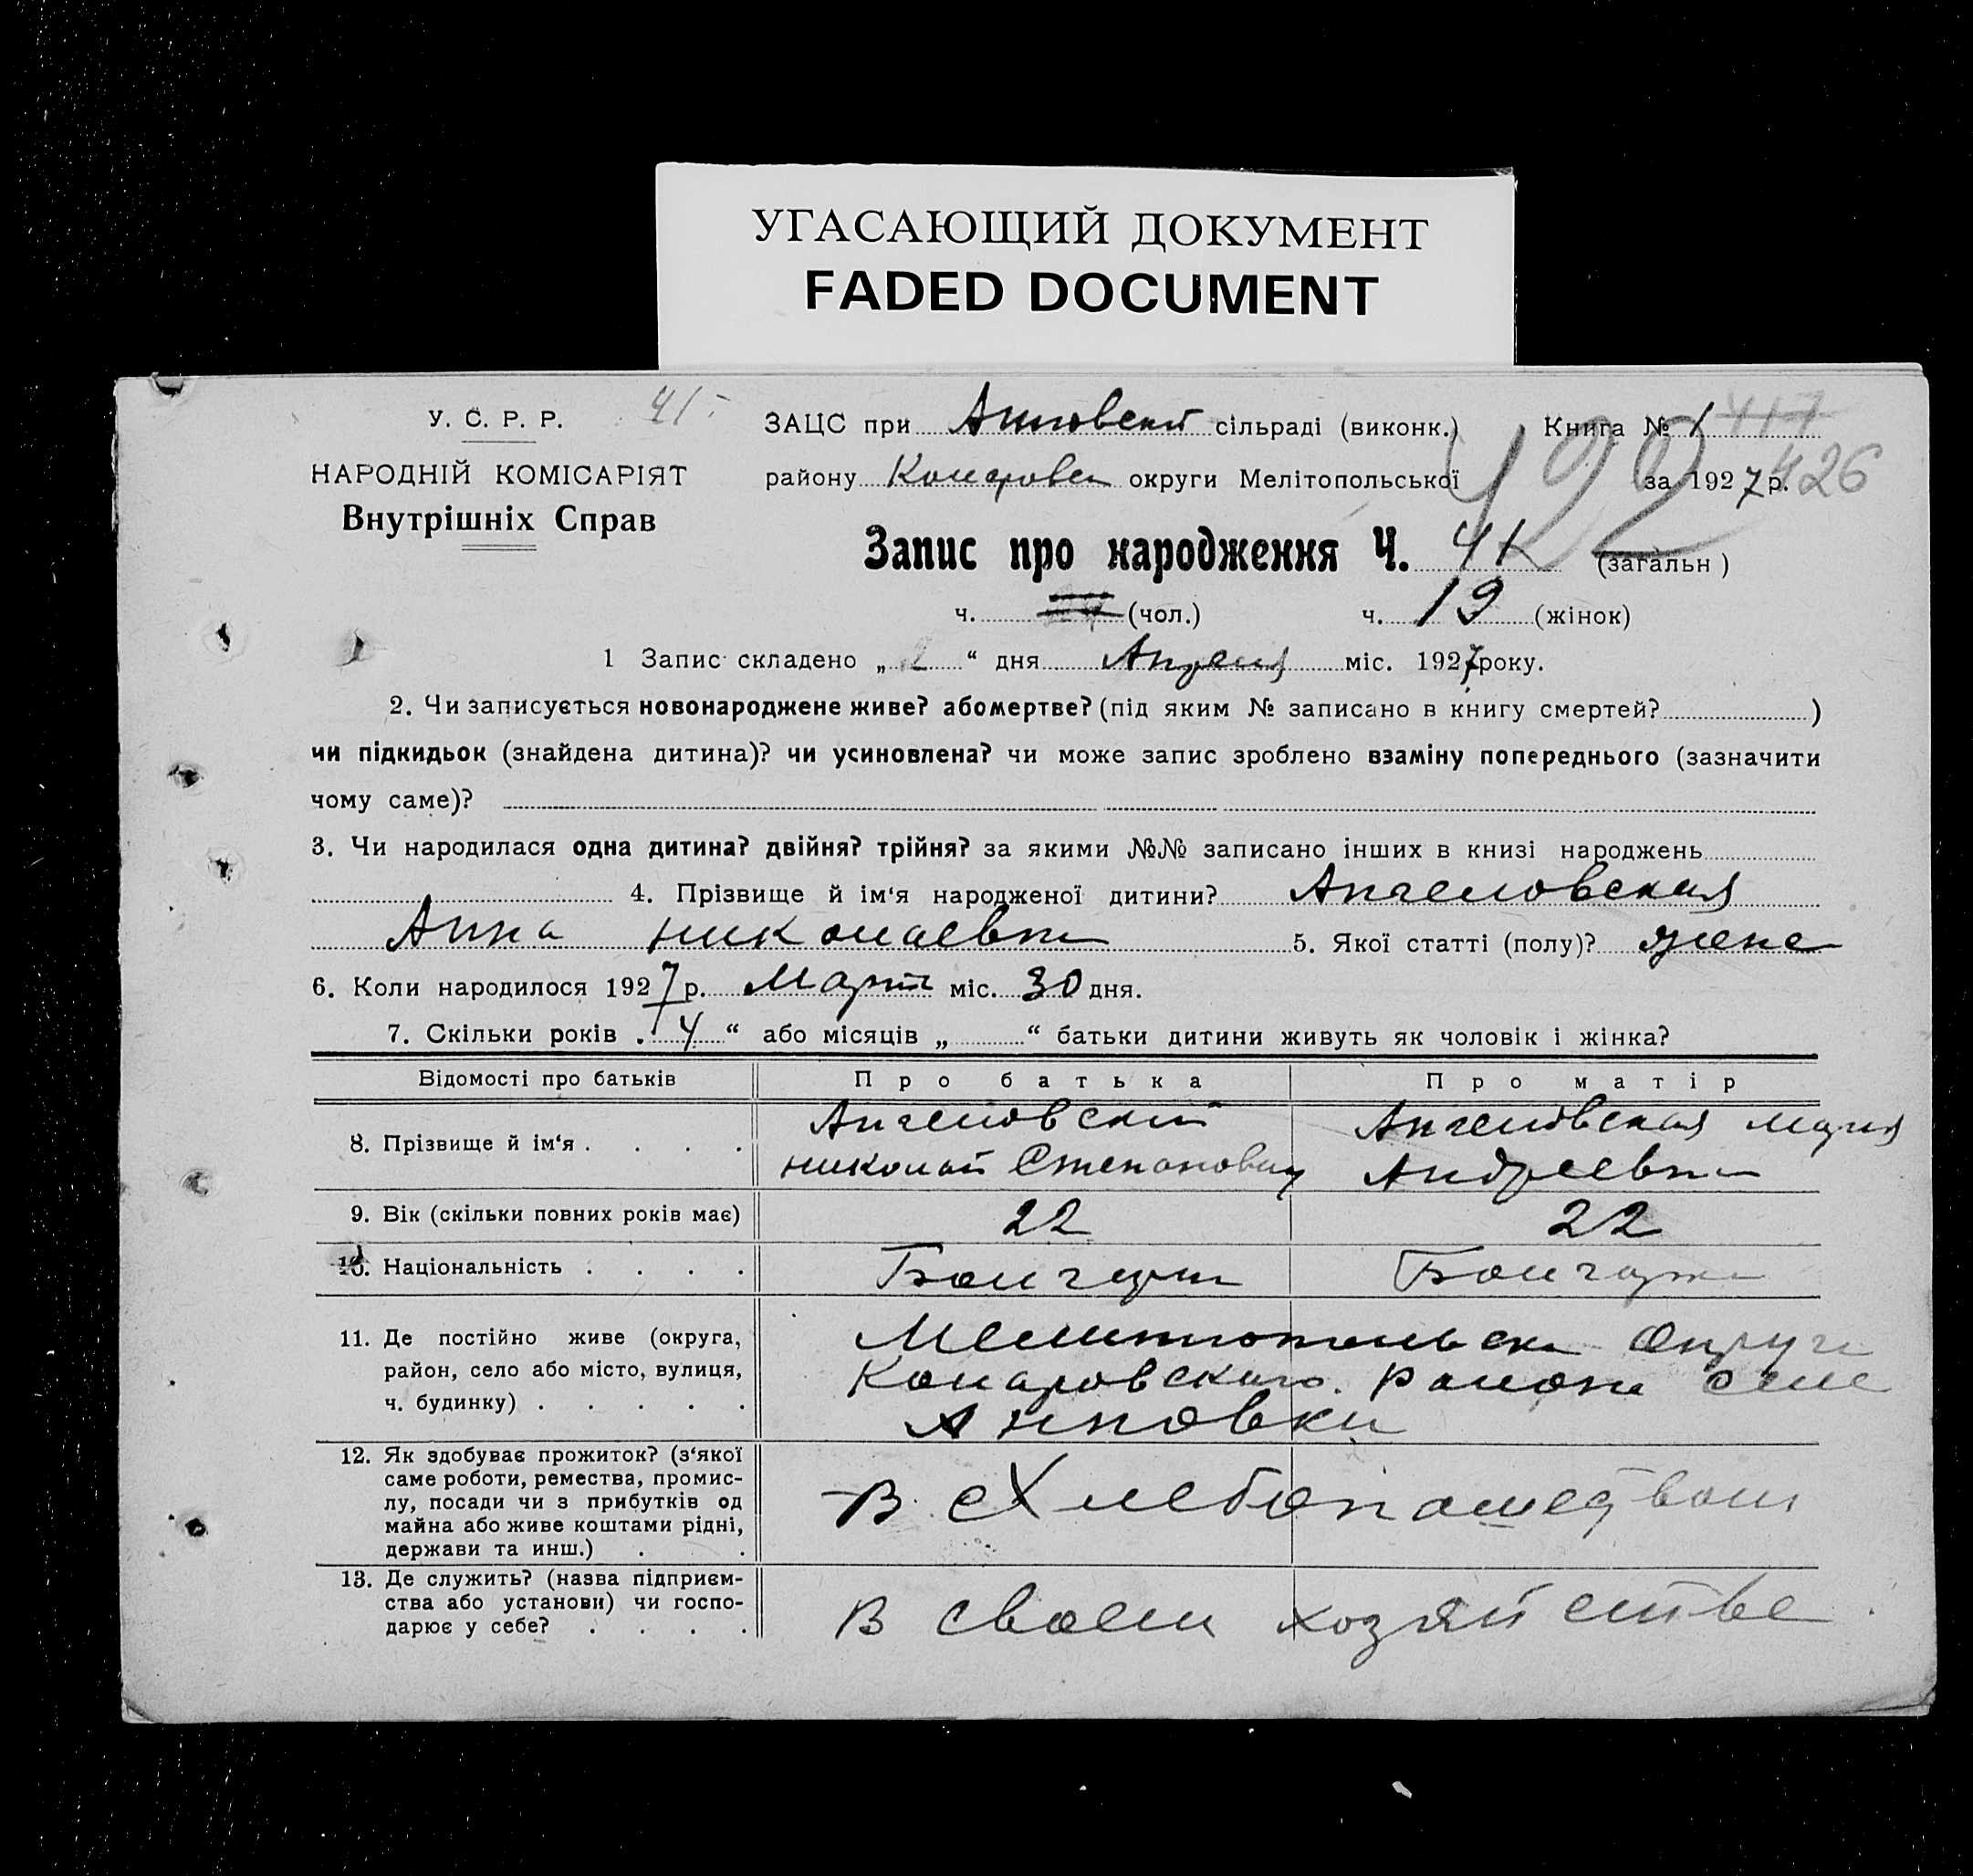 УГАСАЮЩИЙ ДОКУМЕНТ
FADED DOCUMENT
У. С. Р. Р.
41
НАРОДНІЙ КОМІСАРІЯТ
Внутрішніх Справ
ЗАЦС при Анновской сільраді (виконк.) Книга № 1 417
району округи Мелітопольської за 1927 р. 426
192
Запис про народження Ч. 41 (загальн )
ч. (чол.) ч. 19 (жінок)
1 Запис складено „ 2 “ дня Апреля міс. 1927 року.
2. Чи записується новонароджене живе? або мертве? (під яким № записано в книгу смертей? )
чи підкидьок (знайдена дитина)? чи усиновлена? чи може запис зроблено взаміну попереднього (зазначити
чому саме)?
3. Чи народилася одна дитина? двійня? трійня? за якими №№ записано інших в книзі народжень
4. Прізвище й ім‘я народженої дитини? Ангеловская
Анна Николаевна 5. Якої статті (полу)? женс
6. Коли народилося 1927 р. Март міс. 30 дня.
7. Скільки років „ 4 “ або місяців „ “ батьки дитини живуть як чоловік і жінка?
Відомості про батьків Про батька Про матір
8. Прізвище й ім‘я . . . . Ангеловский Ангеловская Мария
Николай Степанович Андреевна
9. Вік (скільки повних років має) 22 22
10. Національність . . . . Болгари Болгарка
11. Де постійно живе (округа,
район, село або місто, вулиця,
ч. будинку) . . . . .
Мелитопольск Округи
Комаровского района Село
Анновки
12. Як здобуває прожиток? (з‘якої
саме роботи, ремества, промис-
лу, посади чи з прибутків од
майна або живе коштами рідні,
держави та инш.) . .
В Хлебопашеством
13. Де служить? (назва підприєм-
ства або установи) чи госпо-
дарює у себе? . . . .
В своем хозяйстве